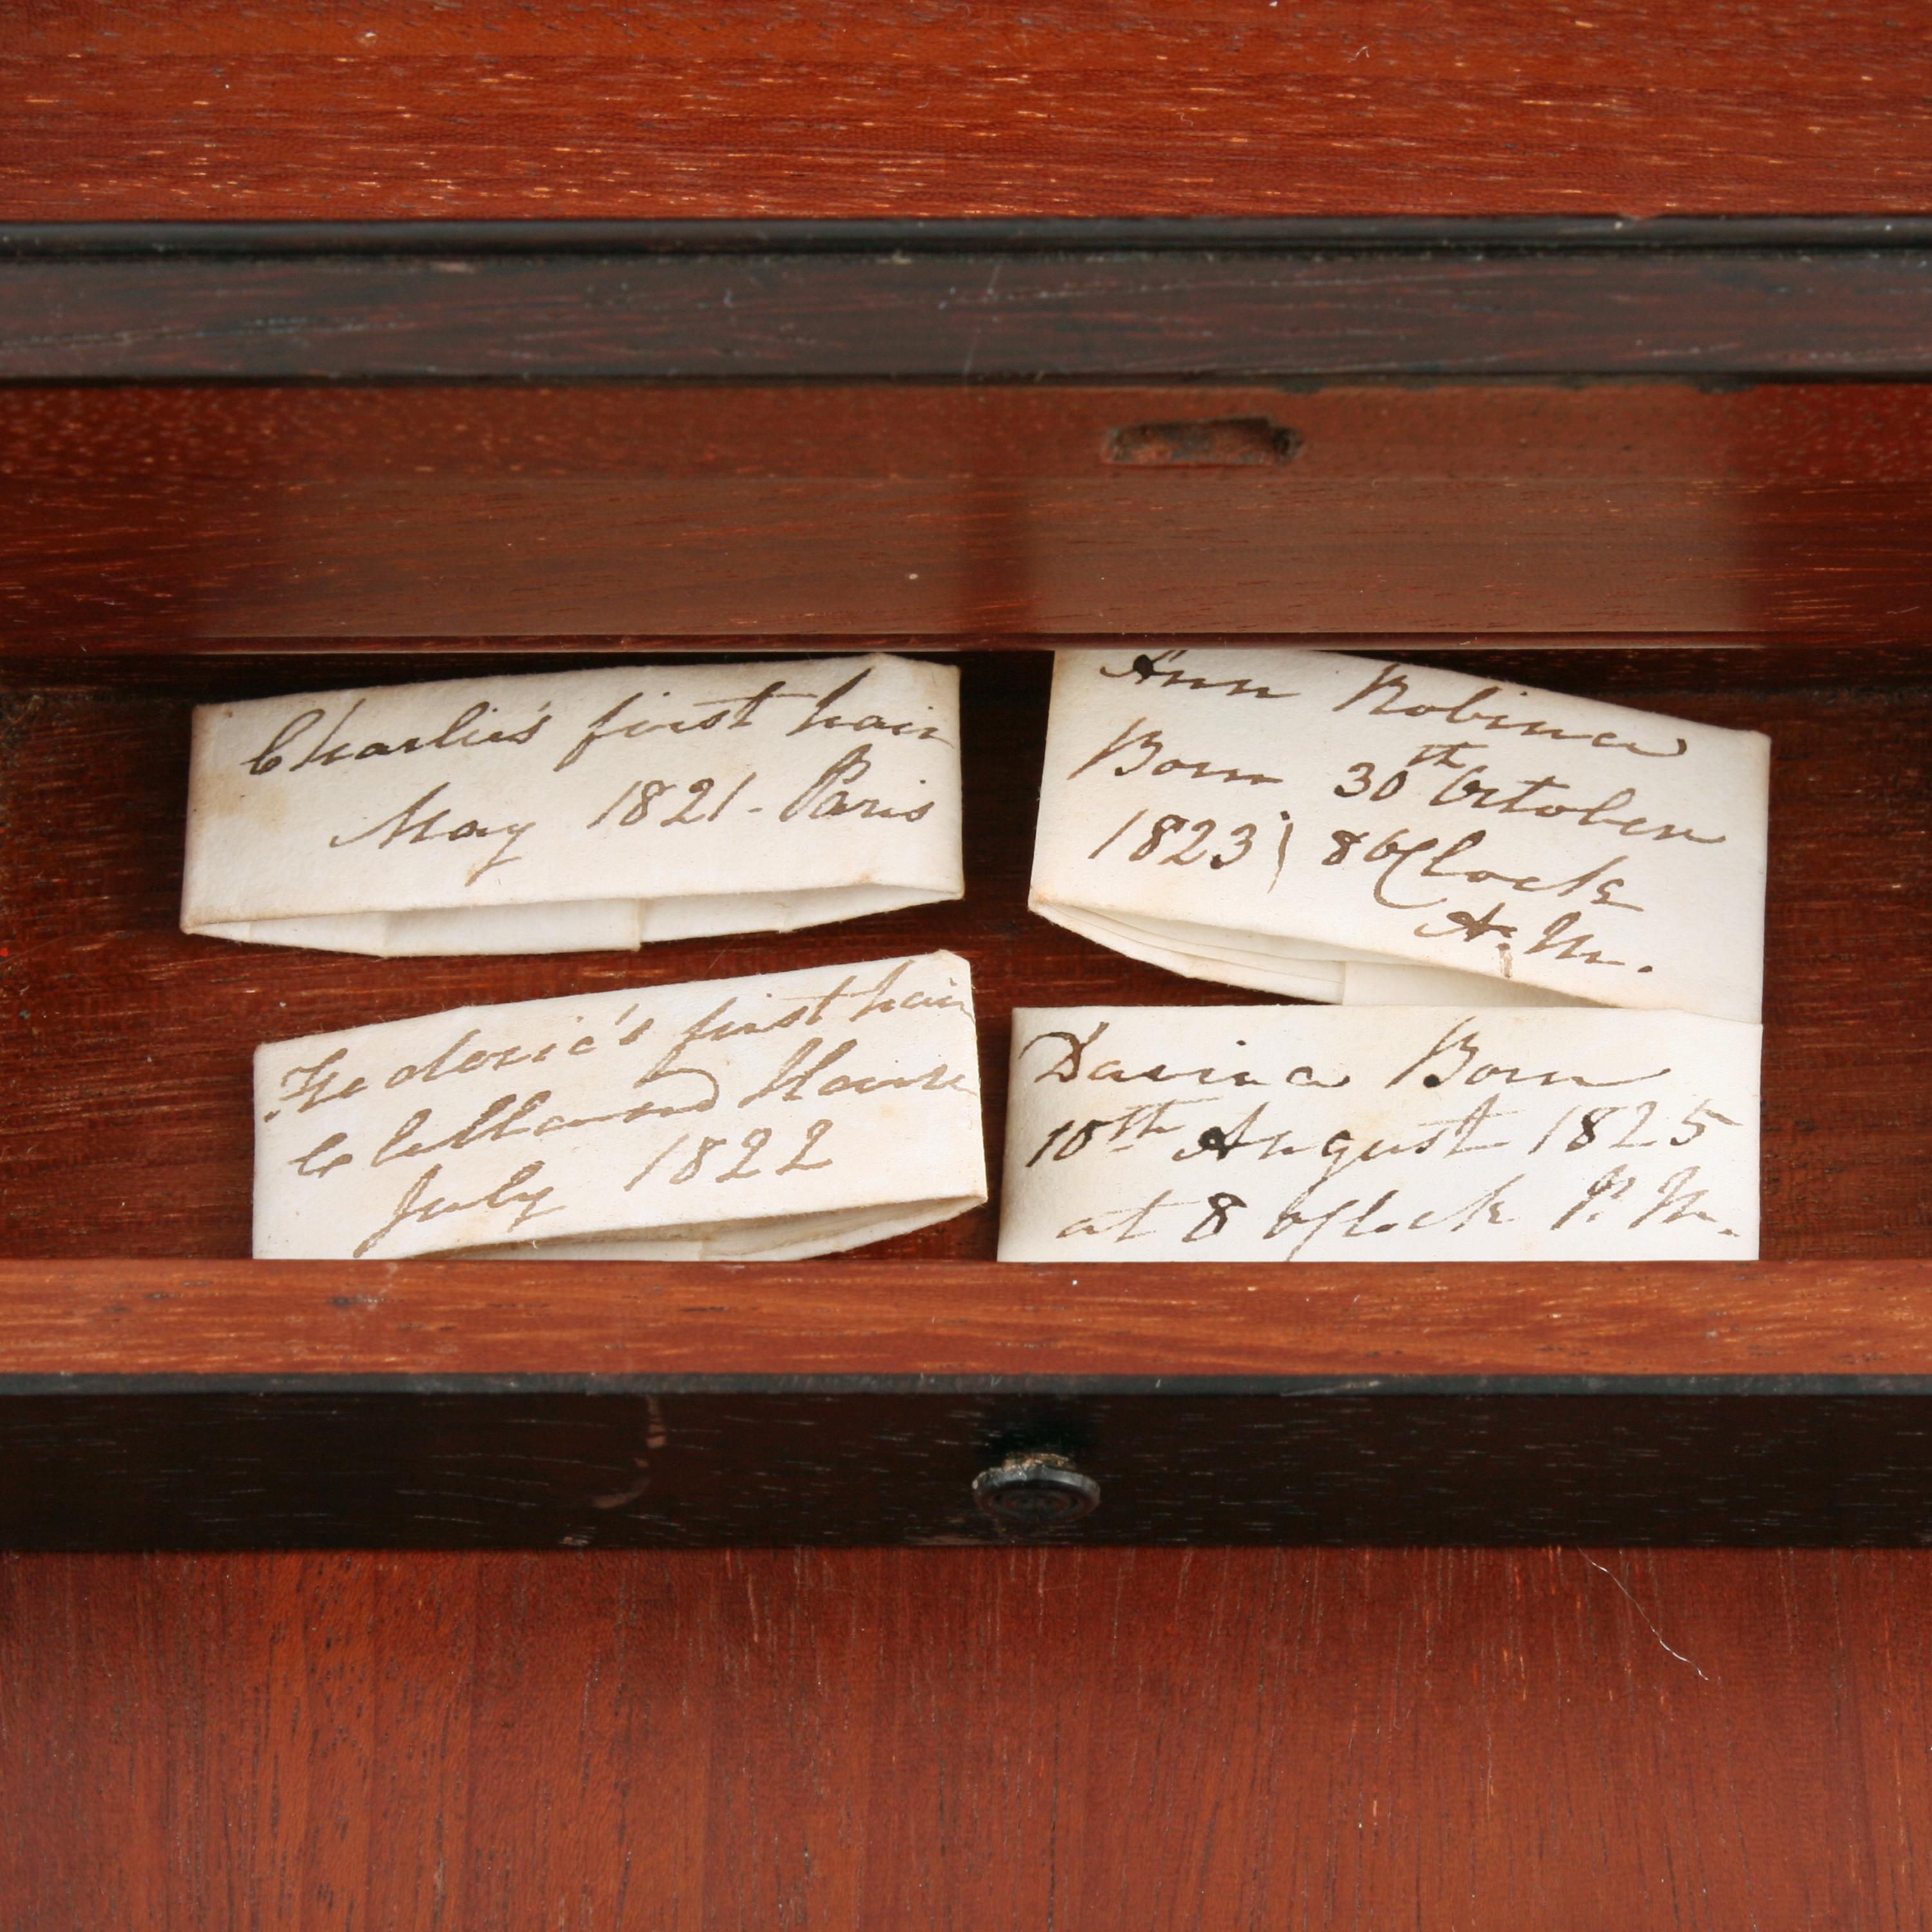 Charlie's first hair
May 1821 - Paris
Ann Robina
Born 30th October
1823; 8 O'Clock
A.M.
Frederic's first hair
House
July 1822
Davina Born
10th August 1825
at 8 o'Clock P.M.